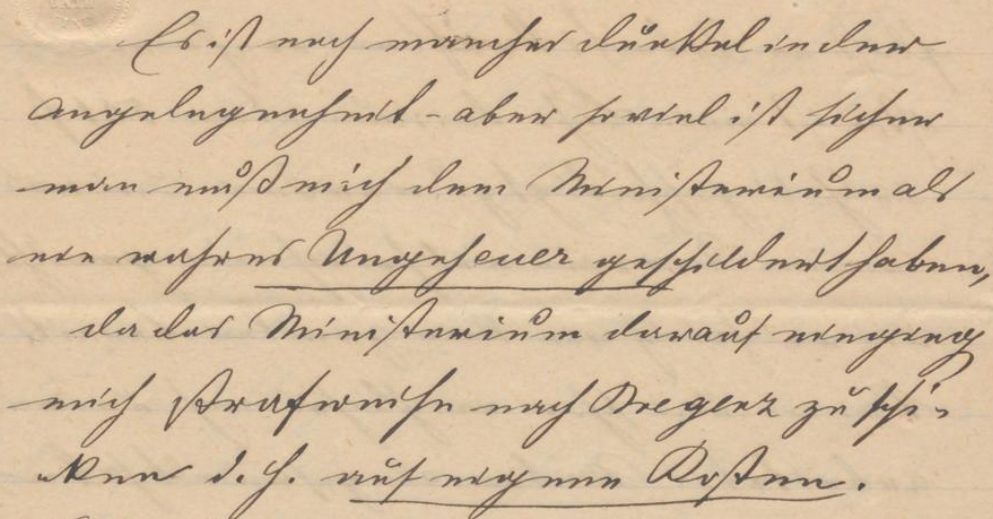 Es ist noch manches dunkel in der
Angelegenheit - aber so viel ist sicher
man muß mich dem Ministerium als
ein wahres Ungeheuer geschildert haben,
da das Ministerium darauf einging
mich strafweise nach Bregenz zu schi-
ken d. h. auf eigene Kosten.